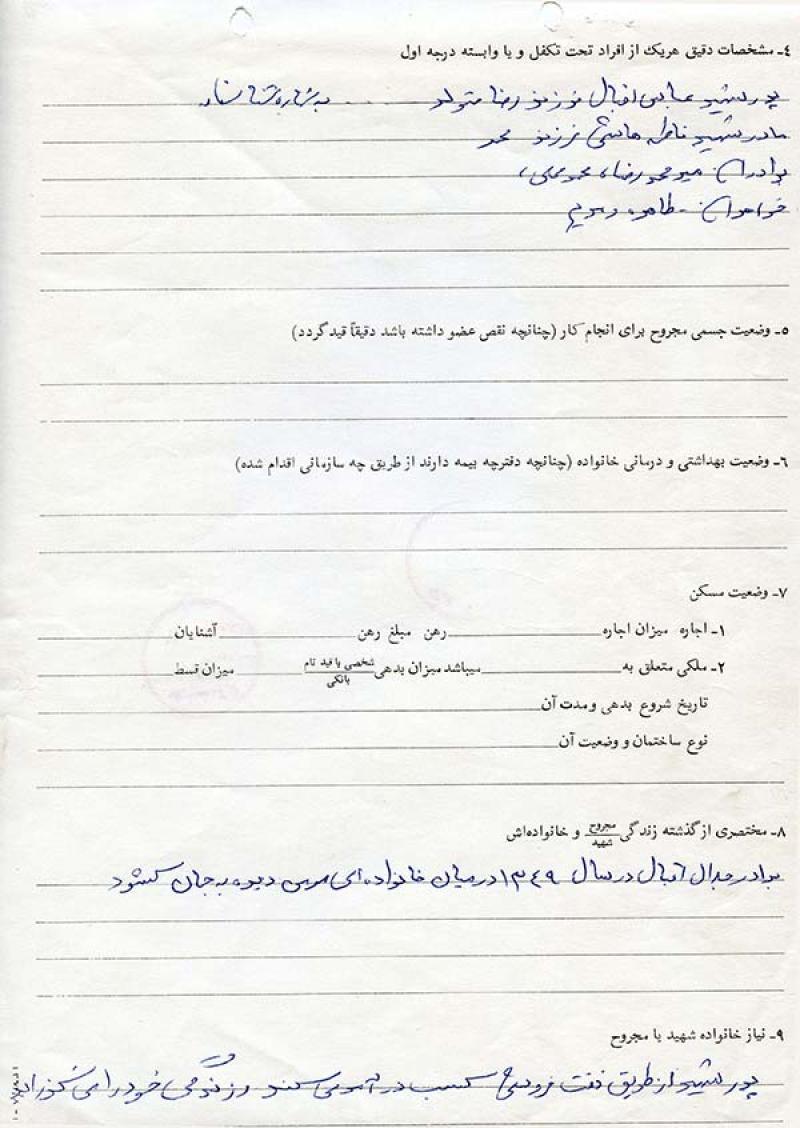 ٤ـ مشخصات دقیق هریک از افراد تحت تکفل و یا وابسته درجه اول
پدر شهید عباس اقبال فرزند رضا متولد ... به شماره شناسنامه
مادر شهید فاطمه هاشمی فرزند محمد
برادران محمدرضا، محمدعلی،
خواهران ـ طاهره و مریم
٥ـ وضعیت جسمی مجروح برای انجام کار (چنانچه نقص عضو داشته باشد دقیقاً قید گردد)
٦ـ وضعیت بهداشتی و درمانی خانواده (چنانچه دفترچه بیمه دارند از طریق چه سازمانی اقدام شده)
٧ـ وضعیت مسکن
١ـ اجاره میزان اجاره رهن مبلغ رهن آشنایان
٢ـ ملکی متعلق به میباشد میزان بدهی شخصی با قید نام بانکی میزان قسط
تاریخ شروع بدهی و مدت آن
نوع ساختمان و وضعیت آن
٨ـ مختصری از گذشته زندگی مجروح شهید و خانواده‌اش
برادر اقبال در سال ١٣٤٩ در میان خانواده‌ای دیده به جهان گشود
٩ـ نیاز خانواده شهید یا مجروح
پدر شهید از طریق نفت فروشی کسب در آمد می کند و زندگی خود را می گذراند